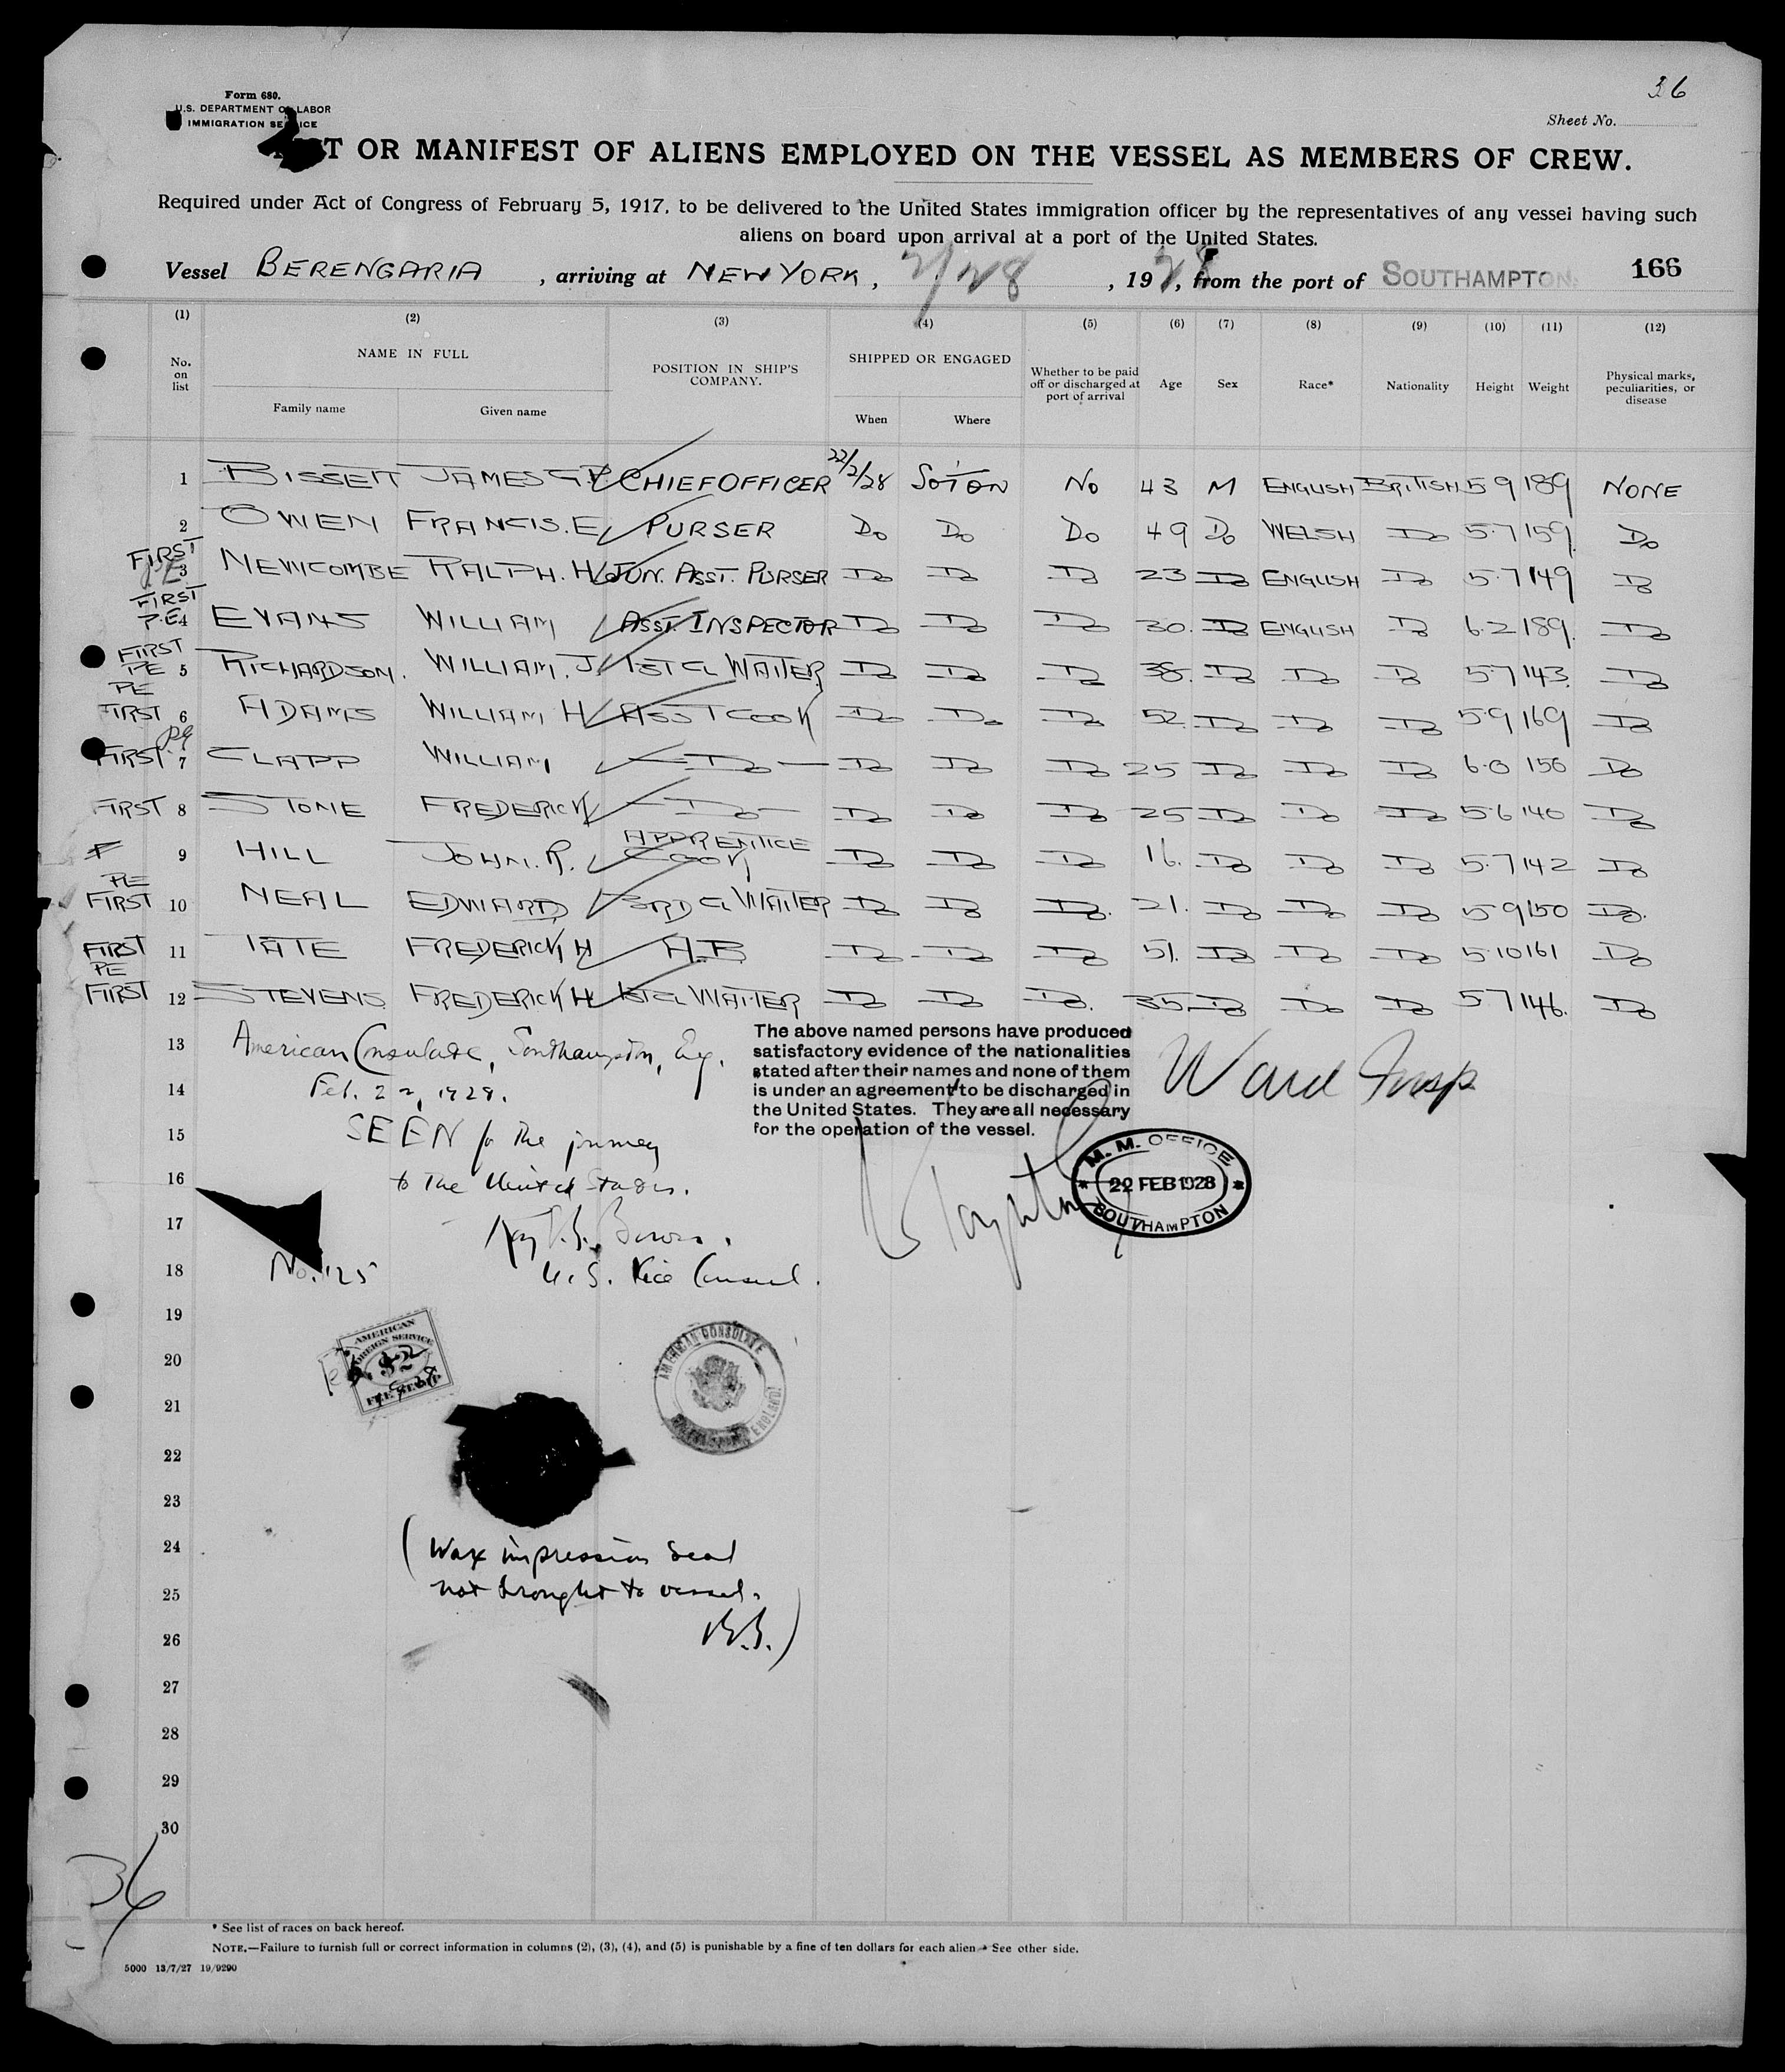 36
Form 680.
U.S. DEPARTMENT OF LABOR
IMMIGRATION SERVICE
Sheet No.
T OR MANIFEST OF ALIENS EMPLOYED ON THE VESSEL AS MEMBERS OF CREW.
Required under Act of Congress of February 5, 1917, to be delivered to the United States immigration officer by the representatives of any vessel having such
aliens on board upon arrival at a port of the United States.
Vessel BERENGARIA, arriving at NEW YORK, 2/28, 1928, from the port of SOUTHAMPTON. 166
(1) (2) (3) (4) (5) (6) (7) (8) (9) (10) (11) (12)
No. on list NAME IN FULL Family name Given name POSITION IN SHIP'S COMPANY. SHIPPED OR ENGAGED When Where Whether to be paid off or discharged at port of arrival Age Sex Race* Nationality Height Weight Physical marks, peculiarities, or disease
1 BISSETT JAMES G.P. CHIEF OFFICER 22/2/28 SOTON NO 43 M ENGLISH BRITISH 5 9 189 NONE
2 OWEN FRANCIS. E PURSER DO DO DO 49 DO WELSH DO 5.7 159 DO
FIRST 3 NEWCOMBE RALPH. H JUN. ASST. PURSER DO DO DO 23 DO ENGLISH DO 5.7 149 DO
FIRST P.E 4 EVANS WILLIAM ASST. INSPECTOR DO DO DO 30. DO ENGLISH DO 6.2 189. DO
FIRST PE 5 RICHARDSON. WILLIAM. J 1ST CL WAITER DO DO DO 38. DO DO DO 5.7 143. DO
PE FIRST 6 ADAMS WILLIAM H ASST COOK DO DO DO 52 DO DO DO 5.9 169 DO
PE FIRST 7 CLAPP WILLIAM DO DO DO DO 25 DO DO DO 6.0 150 DO
FIRST 8 STONE FREDERICK DO DO DO DO 25 DO DO DO 5.6 140 DO
F 9 HILL JOHN. R. APPRENTICE COOK DO DO DO 16. DO DO DO 5.7 142 DO
PE FIRST 10 NEAL EDWARD 3RD CL WAITER DO DO DO. 21. DO DO DO 5 9 150 DO.
FIRST 11 TATE FREDERICK H A.B DO DO DO 51. DO DO DO 5.10 161 DO
PE FIRST 12 STEVENS FREDERICK H 1ST CL WAITER DO DO DO. 35 DO DO DO 5 7 146. DO
The above named persons have produced
satisfactory evidence of the nationalities
stated after their names and none of them
is under an agreement to be discharged in
the United States. They are all necessary
for the operation of the vessel.
Ward Insp
13 American Consulate, Southampton, Eng.
14 Feb. 22, 1928.
15 SEEN for the journey
16 to the United States.
17
18 No. 125 U.S. Vice Consul.
M. M. OFFICE
22 FEB 1928
SOUTHAMPTON
19
20
21
22
23
AMERICAN
FOREIGN SERVICE
$2
FEE STAMP
AMERICAN CONSULATE
ENGLAND
24 (Wax impression seal
25 not brought to vessel.
26 )
27
28
29
30
36
* See list of races on back hereof.
NOTE.—Failure to furnish full or correct information in columns (2), (3), (4), and (5) is punishable by a fine of ten dollars for each alien. See other side.
5000 13/7/27 19/9290